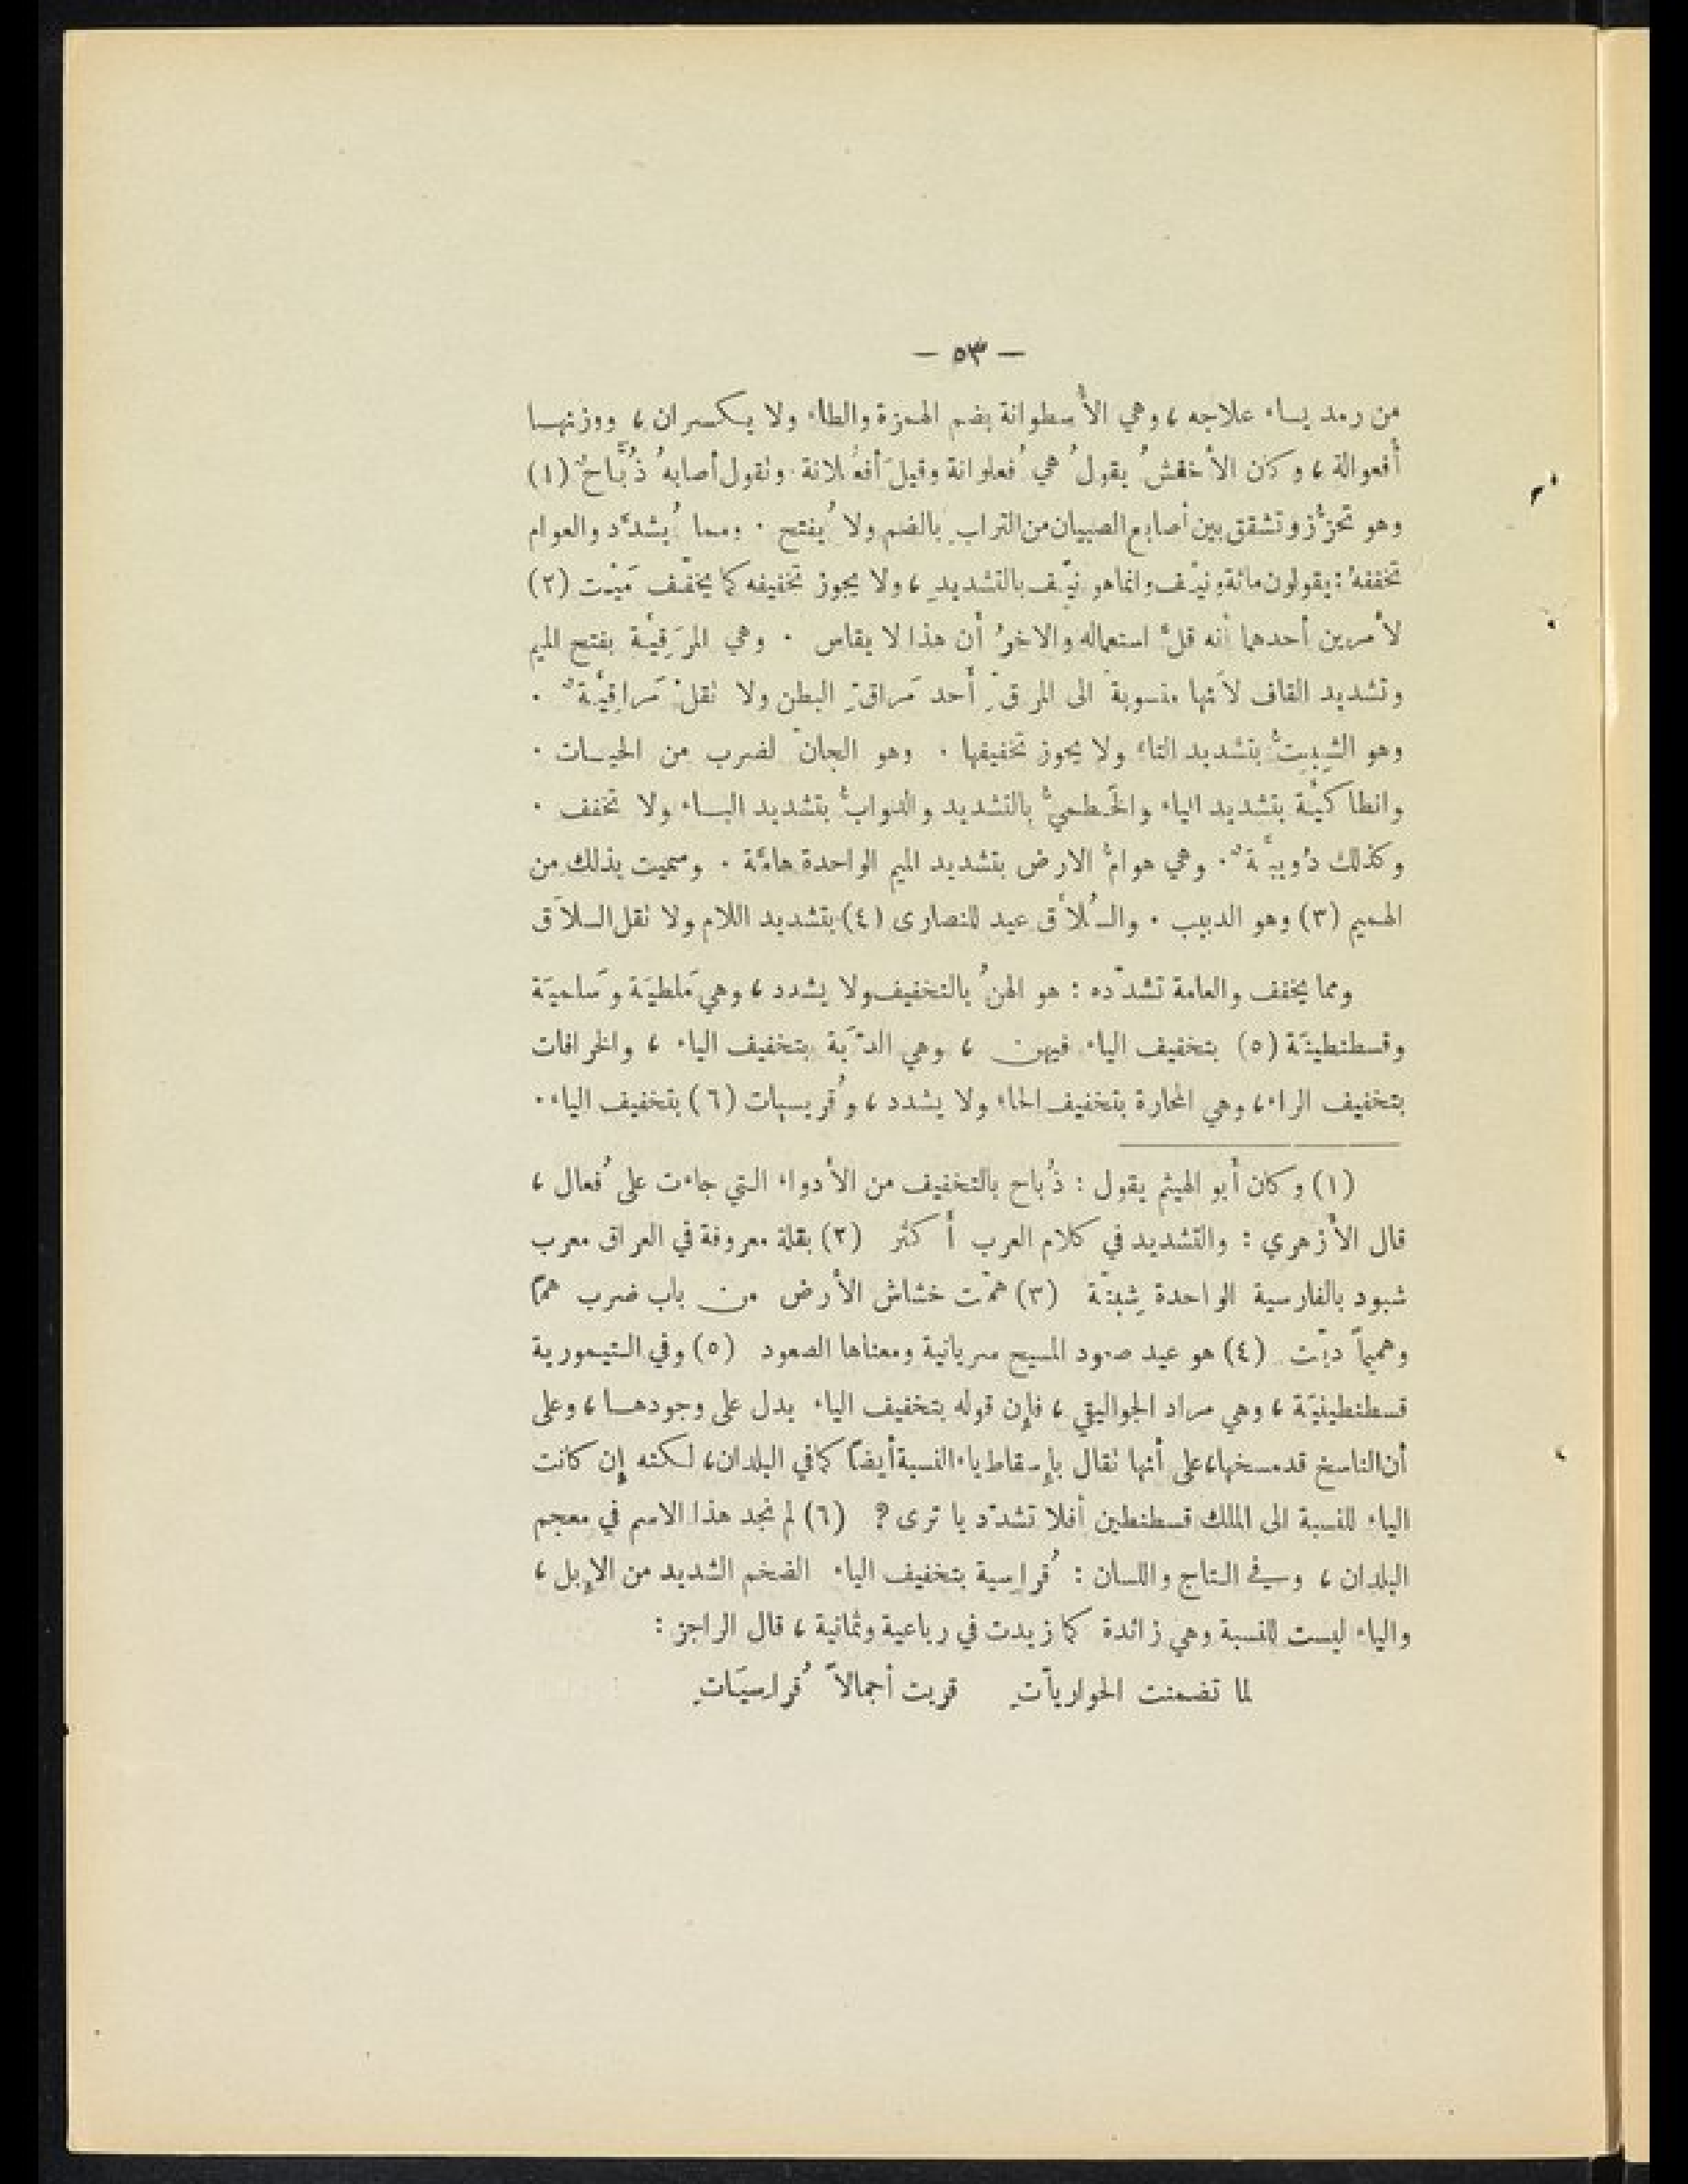 — ٥٣ —
من رمد يساء علاجه ، وهي الأسطوانة بضم الهمزة والطاء ولا يكسران ، ووزنها
أُفعوالة ، وكان الأخفشُ يقولُ هي ُفعلوانة وقيلَ أفعُلانة . ونقول أصابهُ ذُبَّاحٌ (١)
وهو تحزُّز وتشقق بين أصابع الصبيان من التراب ِ بالضم ولا ُيفتح . ومما ُيشدَّد والعوام
تخففهُ : يقولون مائة ونيْف وانما هو نيِّف بالتشديدِ ، ولا يجوز تخفيفه كما يخفّف مَيّت (٢)
لأمرين أحدهما أنه قلَّ استعماله والاخرُ أن هذا لا يقاس . وهي المرَقِيَّة بفتح الميم
وتشديد القاف لأَنها منسوبةَ الى المرَقّ ِ أحد مَراقّ ِ البطن ولا نقلْ مَراقِيَّةٌ .
وهو الشِبِتُّ بتشديد التاء ولا يجوز تخفيفها . وهو الجانّ لضرب من الحيات .
وانطاكيَّة بتشديد الياء والخَطميُّ بالتشديد والدوابُّ بتشديد الباء ولا تخفف .
وكذلك دُويبَّةٌ . وهي هوامُّ الارض بتشديد الميم الواحدة هامَّة . وسميت بذلك من
الهميم (٣) وهو الدبيب . والسُلاَّق عيد للنصارى (٤) بتشديد اللام ولا نقل السلاَق
ومما يخفف والعامة تشدّده : هو الهنُ بالتخفيف ولا يشدد ، وهي مَلطيَة وسَلميَة
وقسطنطينَة (٥) بتخفيف الياء فيهن ، وهي الدِيَة بتخفيف الياء ، والخرافات
بتخفيف الراء ، وهي المحارة بتخفيف الحاء ولا يشدد ، وُقريسيات (٦) بتخفيف الياء .
(١) وكان أبو الهيثم يقول : ذُباح بالتخفيف من الأدواء التي جاءت على ُفعال ،
قال الأزهري : والتشديد في كلام العرب أكثر (٢) بقلة معروفة في العراق معرب
شبود بالفارسية الواحدة شِبِتّة (٣) همّت خشاش الأرض من باب ضرب همًّا
وهميماً دبّت (٤) هو عيد صعود المسيح سريانية ومعناها الصعود (٥) وفي التيمورية
قسطنطينيّة ، وهي مراد الجواليقي ، فإن قوله بتخفيف الياء يدل على وجودها ، وعلى
أن الناسخ قد مسخها ، على أنها نقال بإسقاط ياء النسبة أيضاً كما في البلدان ، لكنه إن كانت
الياء للنسبة الى الملك قسطنطين أفلا تشدّد يا ترى ? (٦) لم نجد هذا الاسم في معجم
البلدان ، وفي التاج واللسان : ُقراسية بتخفيف الياء الضخم الشديد من الإبل ،
والياء ليست للنسبة وهي زائدة كما زيدت في رباعية وثمانية ، قال الراجز :
لما تضمنت الحوارياّتِ قربت أجمالاً ُقراسيَاتِ